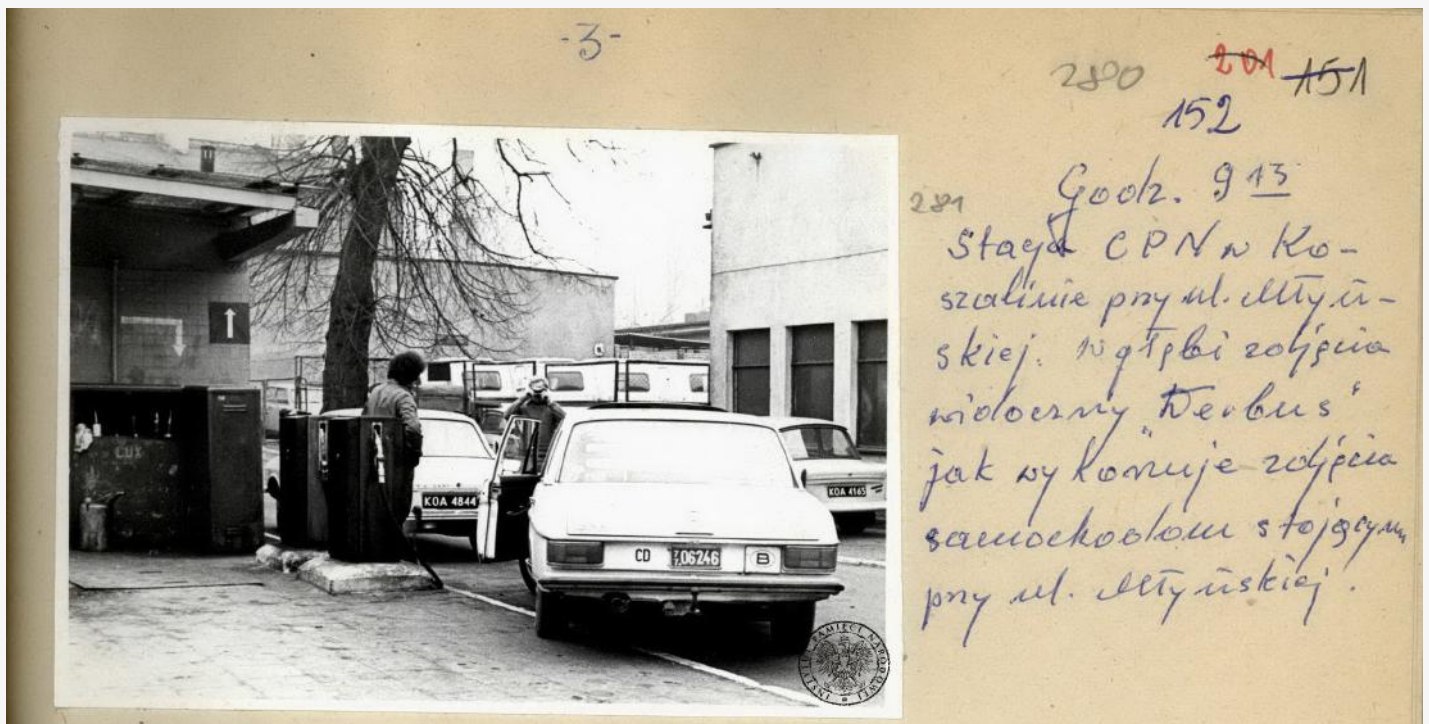 -3-
280 201 151
152
281
Godz. 9 13
Stacja CPN w Ko-
szalinie przy ul. Młyń-
skiej. W głębi zdjęcia
widoczny "Derbus"
jak wykonuje zdjęcia
samochodom stojącym
przy ul. Młyńskiej.
CUX
KOA 4844
KOA 4165
CD 77 06246 B
INSTYTUT PAMIĘCI NARODOWEJ